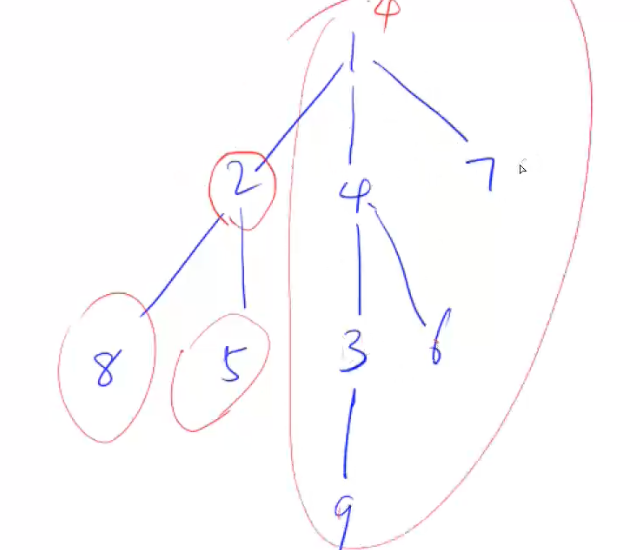 4
1
2 4 7
8 5 3 6
9